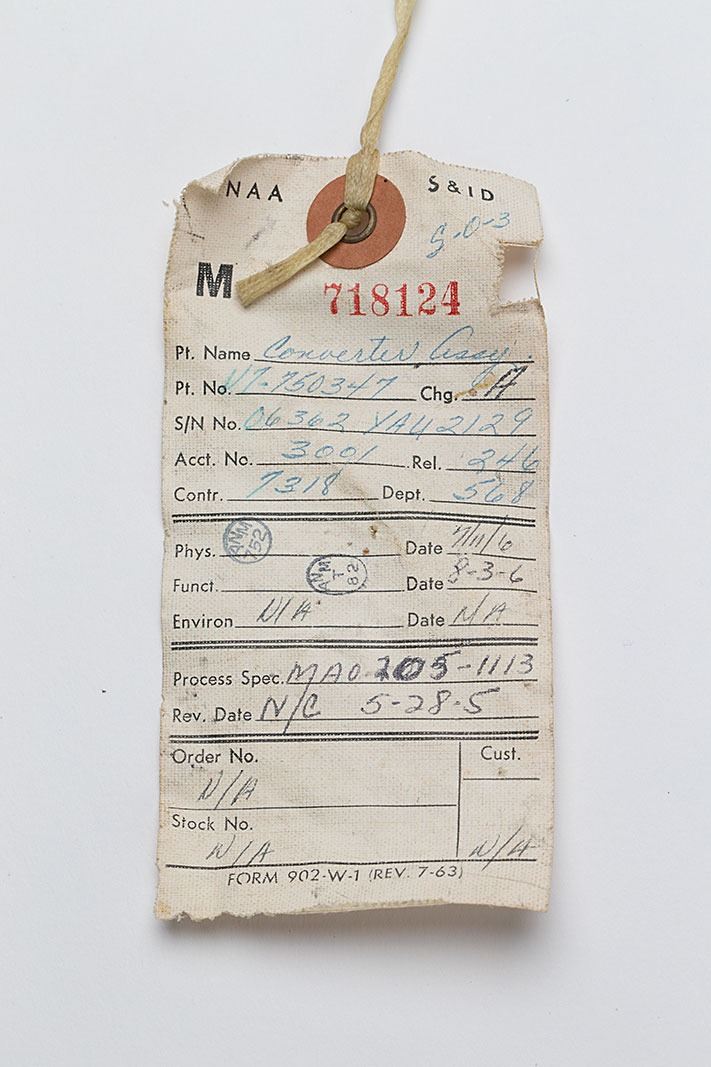 NAA S & I D
S-0-3
M
718124
Pt. Name Converter Assy.
Pt. No. V7-750347 Chg. A
S/N No. 06362 YAU2129
Acct. No. 3001 Rel. 246
Contr. 7318 Dept. 568
Phys. ANM 752 Date 7/11/6
Funct. ANM T 82 Date 8-3-6
Environ N/A Date N/A
Process Spec. MA0205-1113
Rev. Date N/C 5-28-5
Order No. Cust.
N/A
Stock No.
N/A N/A
FORM 902-W-1 (REV. 7-63)